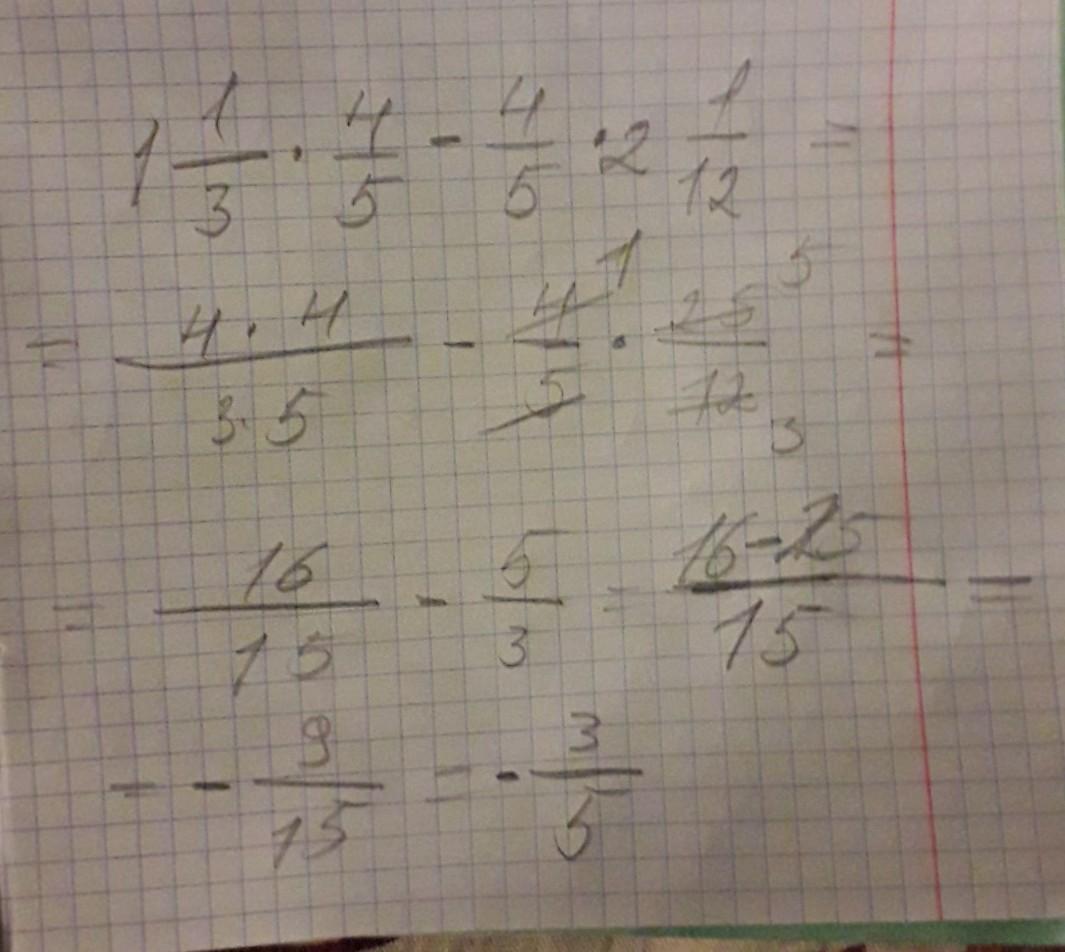 1 1/3 · 4/5 - 4/5 · 2 1/12 =
= 4 · 4 / 3 · 5 - 4/5 1 · 25/12 5 3 =
= 16/15 - 5/3 = 16-25/15 =
= - 9/15 = - 3/5